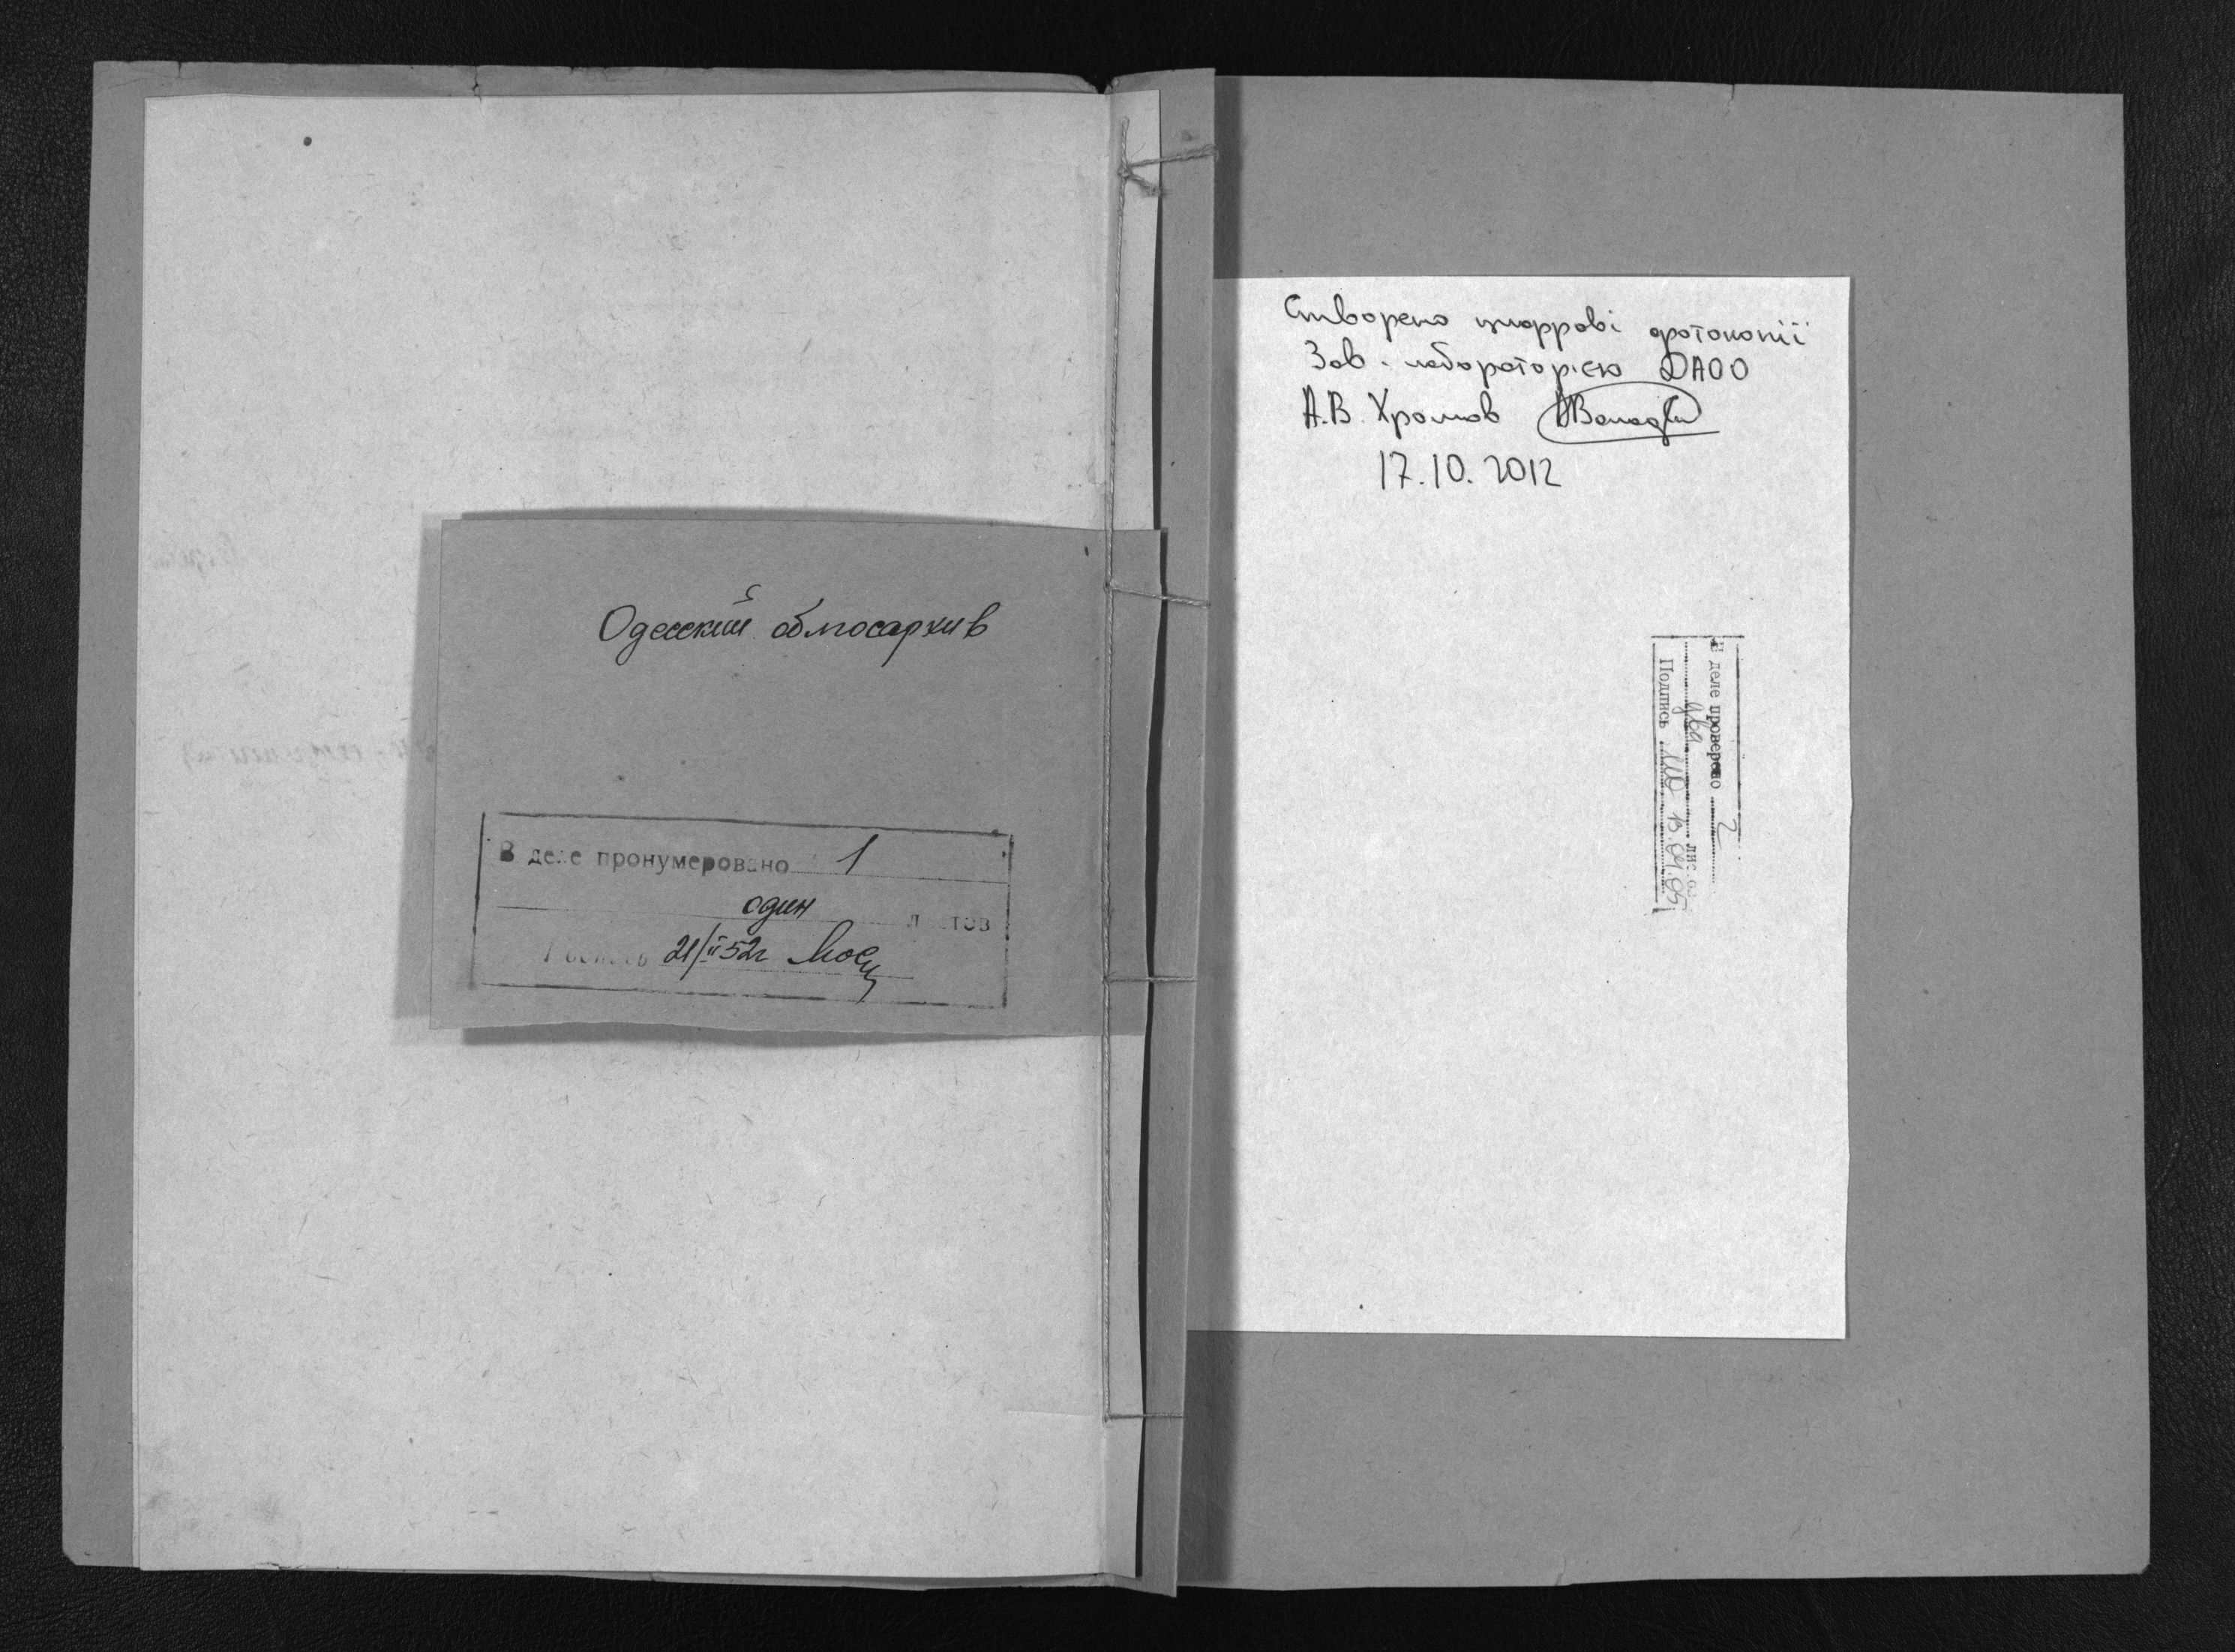 Одесский облгосархив
В деле пронумеровано 1
один листов
21/II 52г
Створено цифрові фотокопії
Зав. лабораторією ДАОО
А.В. Хромов
17.10.2012
В деле проверено 2
два лис.ов
Подпись 13.04.05